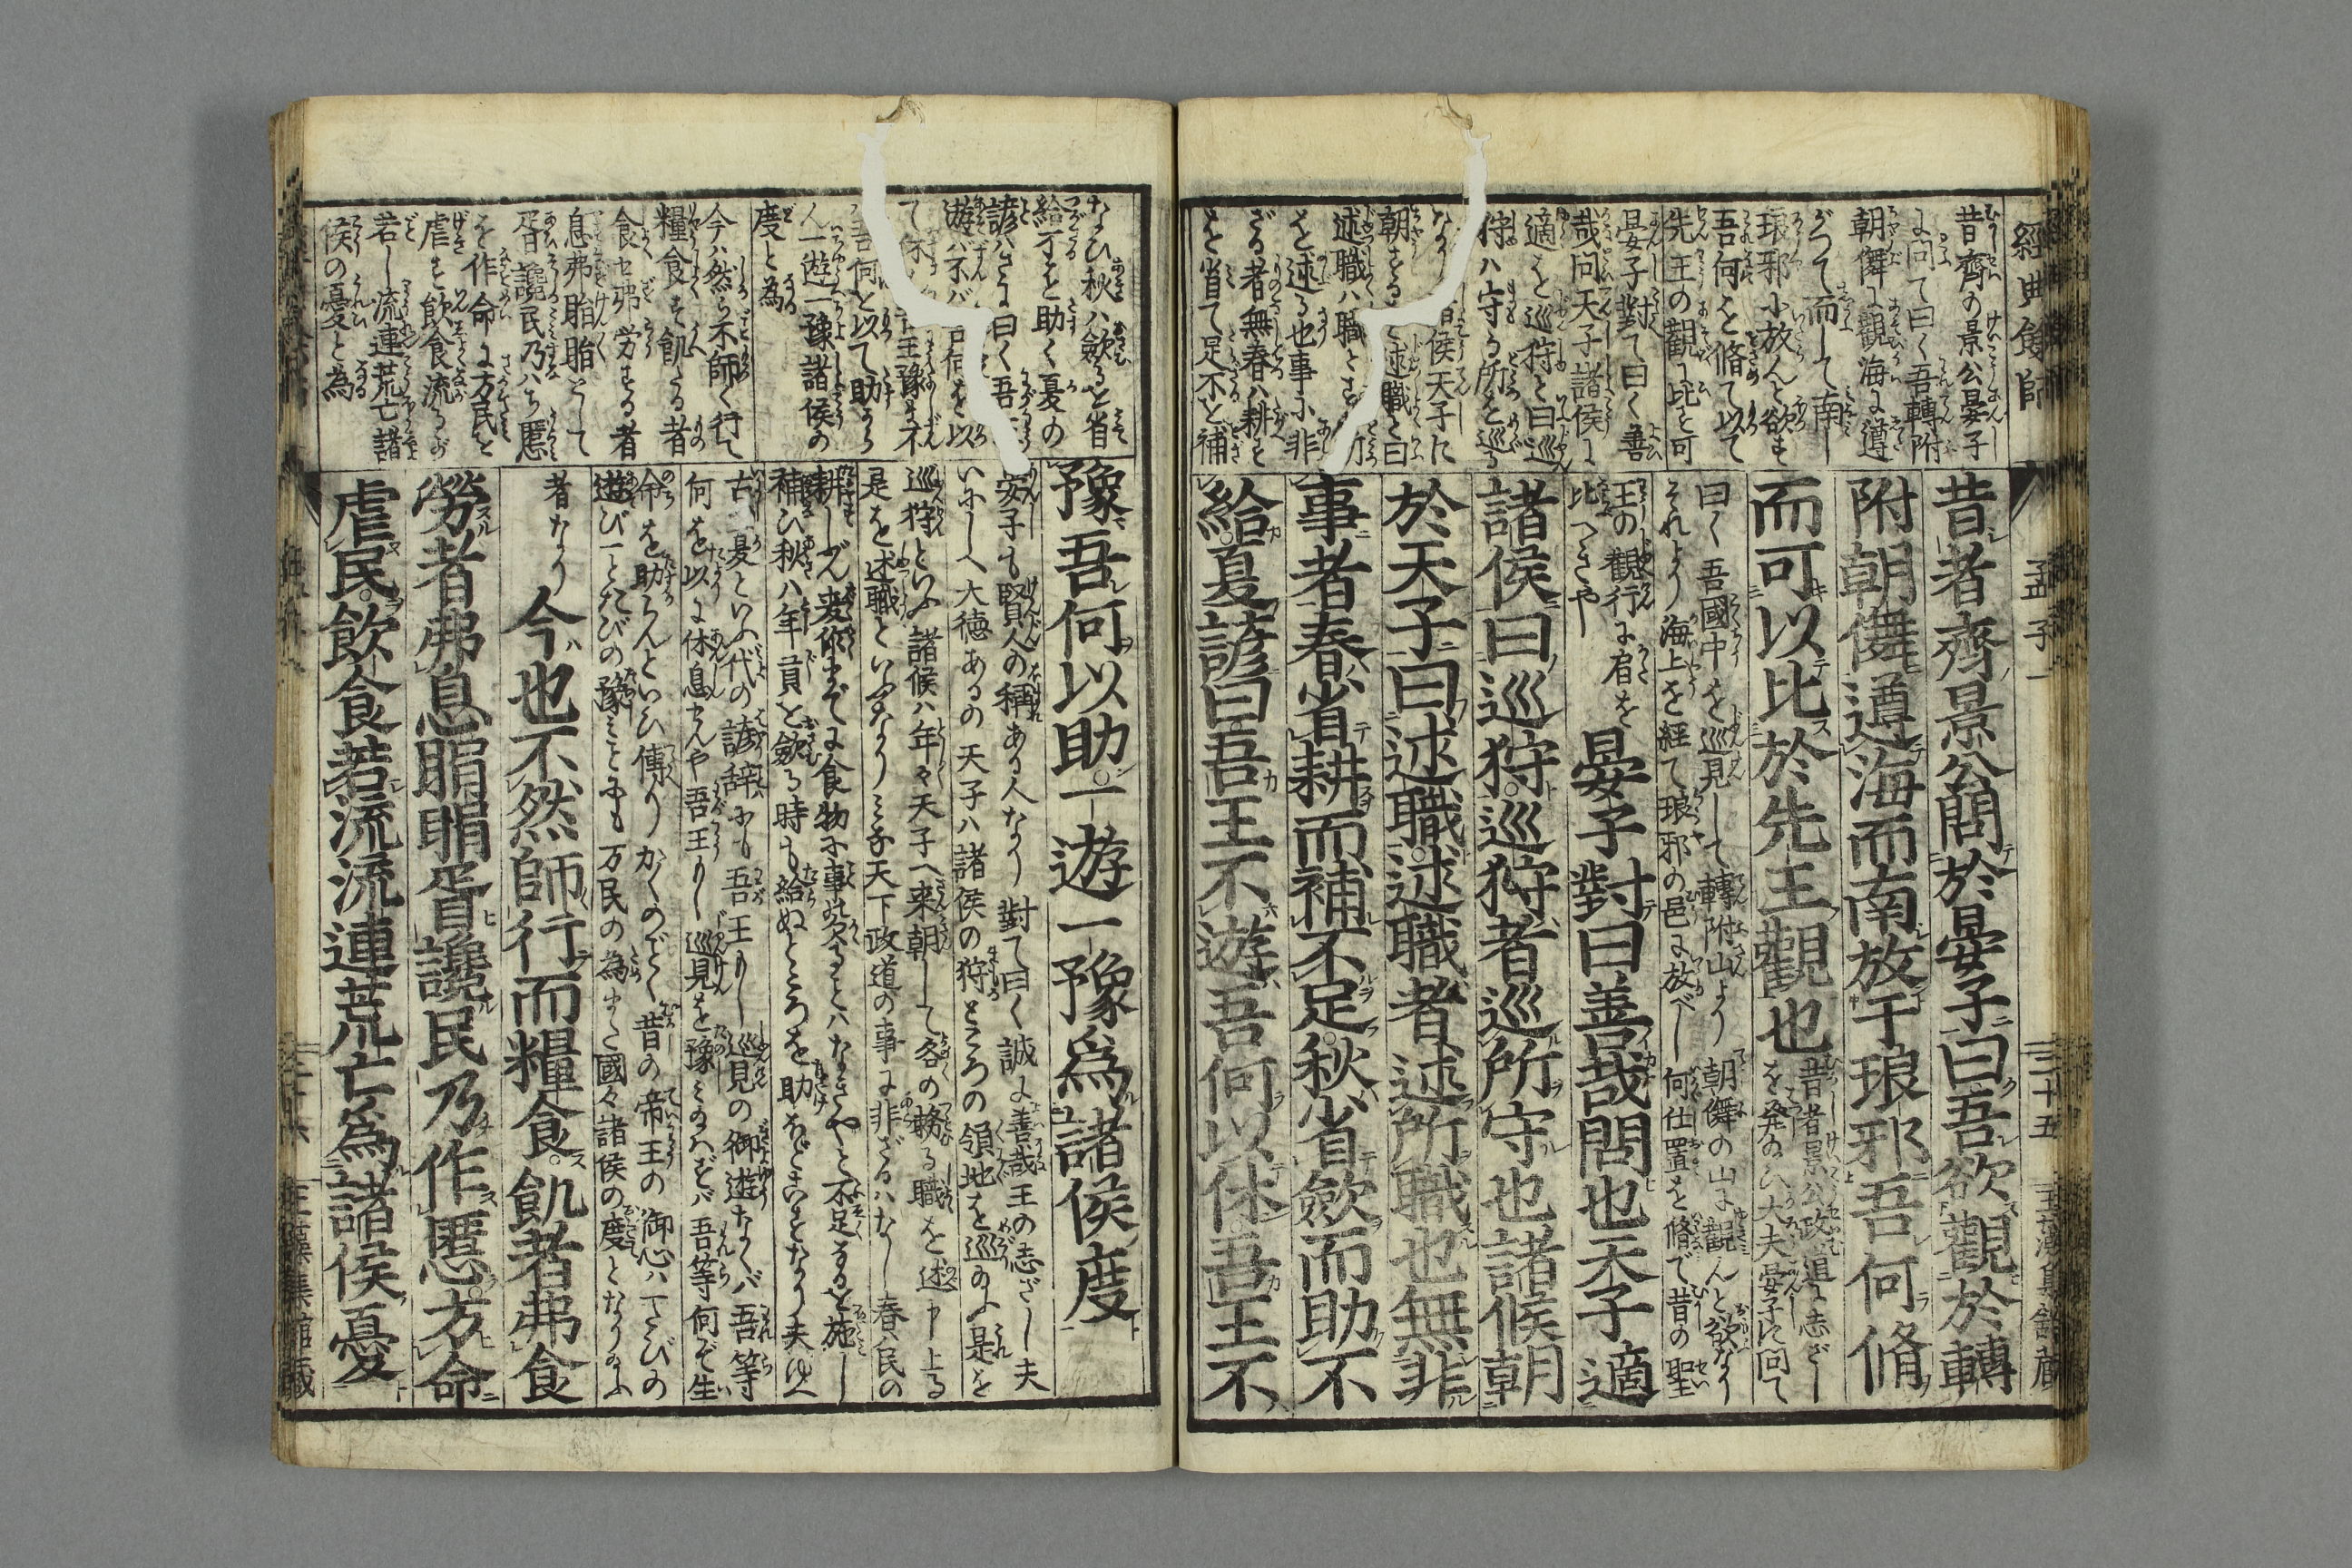 經典餘師 孟子一 三十五
昔齊の景公晏子
に問て曰く吾轉附
朝儛に觀海に遵
がつて而して南し
琅邪に放んと欲す
吾何を脩て以て
先王の觀に比を可
晏子對て曰く善
哉問天子諸侯に
適を巡狩と曰巡
狩ハ守る所を巡る
なり 諸侯天子に
朝するを述職と曰
述職ハ職とする所
を述る也事に非
ざる者無春ハ耕を
を省て足不を補
昔者齊景公問於晏子曰吾欲觀於轉
附朝儛遵海而南放于琅邪吾何脩
而可以比於先王觀也
昔者景公政道に志ざし
を発め大夫晏子に問て
曰く吾國中を巡見して轉附山より朝儛の山に觀んと欲なり
それより海上を経て琅邪の邑に放べし何仕置を脩で昔の聖
王の觀行に肩を
比べきや
晏子對曰善哉問也天子適
諸侯曰巡狩。巡狩者巡所守也諸侯朝
於天子曰述職。述職者述所職也無非
事者春省耕而補不足。秋省斂而助不
給。夏諺曰吾王不遊吾何以休。吾王不
なひ秋ハ斂るを省
給不を助く夏の
諺ハさに曰く吾王
遊ハ不バ吾何を以
吾何と以て助から
ん一遊一豫諸侯の
度と為
今ハ然ら不師く行て
糧食す飢る者
食セ弗労する者
息弗睊睊として
胥讒民乃ハち慝
を作命に方民を
虐す飲食流るが
若し流連荒亡諸
侯の憂と為
豫吾何以助。一遊一豫爲諸侯度
晏子も賢人の稱ある人なり對て曰く誠に善哉王の志ざし夫
いにしへ大徳あるの天子ハ諸侯の狩ところの領地を巡のふ是を
巡狩といふ諸侯ハ年々天子へ来朝して各の務る職を述申上る
是を述職といふなりミな天下政道の事に非ざるハなし春ハ民の
耕しがた麦作までに食物に事欠ることハなきやと不足なるを施し
補ひ秋ハ年貢を斂る時も給ぬところを助ほどこすなり夫ゆへ
古夏といふ代の諺辞にも吾王もし巡見の御遊なくバ吾等
何を以に休息せんや吾王もし巡見を豫ミのハずバ吾等何ぞ生
命を助らんといひ傳り かくのごとく昔の帝王の御心ハ一たびの
遊び一とたびの豫ミことにも万民の為また國々諸侯の度となりのふ
者なり
今也不然師行而糧食。飢者弗食
勞者弗息睊睊胥讒民乃作慝。方命
虐民。飲食若流流連荒亡爲諸侯憂